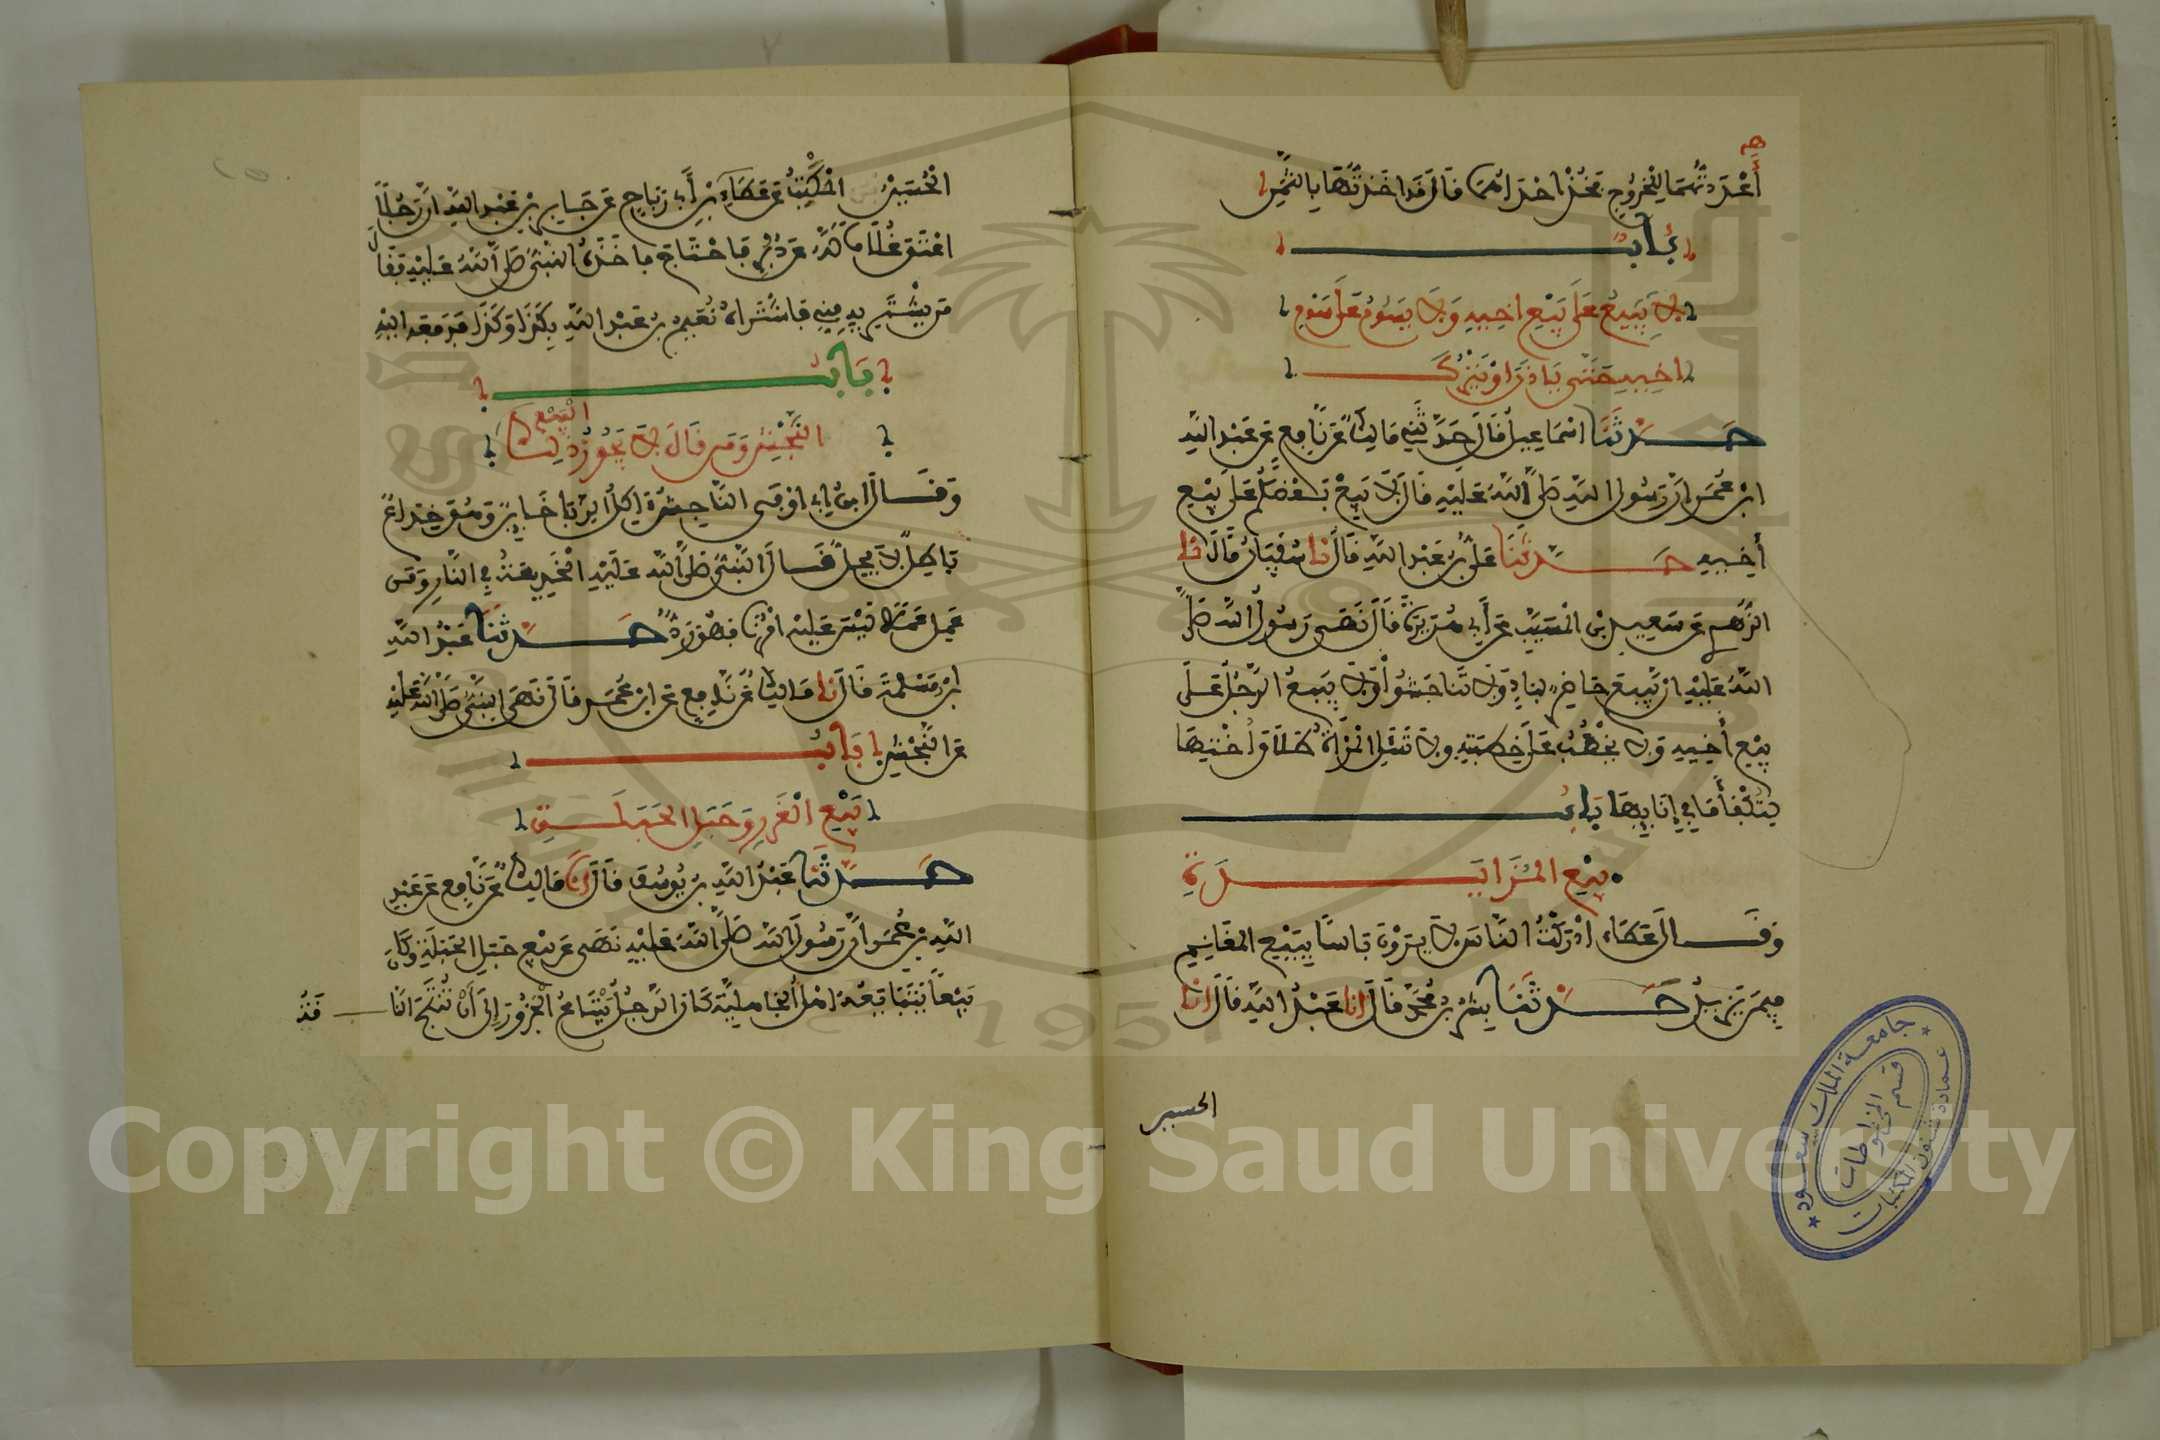 أَعْدَدتُّهُمَا لِلْخُرُوجِ فَخُذْ احْدَاهُمَا فَالَ فَدَ اخَذتُّهَا بِالثَّمَنِ
بَابُ
لَا يَبِيعُ عَلَى بَيْعِ اخِيهِ وَلَا يَسُومُ عَلَى سَوْمِ
اخِيهِ حَتَّى يَاذَنَ اوْ يَتْرُكَ
حَدَّثَنَا اسْمَاعِيلُ فَالَ حَدَّثَنِي مَالِكٌ عَن نَّافِعٍ عَن عَبْدِ اللَّهِ
ابْنِ عُمَرَ أَنَّ رَسُولَ اللَّهِ صَلَّى اللَّهُ عَلَيْهِ فَالَ لَا يَبِعْ بَعْضُكُمْ عَلَى بَيْعِ
أَخِيهِ حَدَّثَنَا عَلِيُّ بْنُ عَبْدِ اللَّهِ فَالَ نا سُفْيَانُ فَالَ نا
الزُّهْرِي عَن سَعِيدِ بْنِ الْمُسَيِّبِ عَن أَبِي هُرَيْرَةَ فَالَ نَهَى رَسُولُ اللَّهِ صَلَّى
اللَّهُ عَلَيْهِ ان يَّبِيعَ حَاضِرٌ لِبَادٍ وَلَا تَنَاجَشُوا وَلَا يَبِيعُ الرَّجُلُ عَلَى
بَيْعِ أَخِيهِ وَلَا يَخْطُبُ عَلَى خِطْبَتِهِ وَلَا تَسْئَلِ الْمَرْأَةُ طَلَاقَ اخْتِهَا
لِتَكْفَأَ مَا فِي إِنَائِهَا بَابُ
بَيْعِ الْمُزَايَدَةِ
وَفَالَ عَطَاء ادْرَكْتُ النَّاسَ لَا يَرَوْنَ بَاسًا بِبَيْعِ الْمَغَانِمِ
فِيمَن يَزِيدُ حَدَّثَنَا بِشْرُ بْنُ مُحَمَّدٍ فَالَ انا عَبْدُ اللَّهِ فَالَ انا
الحسين
الْحُسَيْنُ الْمُكْتِبُ عَن عَطَاءِ بْنِ أَبِي رَبَاحٍ عَن جَابِرِ بْنِ عَبْدِ اللَّهِ انَّ رَجُلًا
اعْتَقَ غُلَامًا لَّهُ عَن دُبُرٍ فَاحْتَاجَ فَاخَذَهُ النَّبِيُّ صَلَّى اللَّهُ عَلَيْهِ فَقَالَ
مَن يَّشْتَرِيهِ مِنِّي فَاشْتَرَاهُ نُعَيْمُ بْنُ عَبْدِ اللَّهِ بِكَذَا وَكَذَا فَدَفَعَهُ الَيْهِ
بَابُ
النَّجْشِ وَمَن فَالَ لَا يَجُوزُ ذَلِكَ الْبَيْعُ
وَفَالَ ابْنُ أَبِي اوْفَى النَّاجِشُ آكِلُ الرِّبَا خَائِنٌ وَهُوَ خِدَاعٌ
بَاطِلٌ لَا يَحِلُّ فَالَ النَّبِيُّ صَلَّى اللَّهُ عَلَيْهِ الْخَدِيعَةُ فِي النَّارِ وَمَن
عَمِلَ عَمَلًا لَيْسَ عَلَيْهِ امْرُنَا فَهُوَ رَدٌّ حَدَّثَنَا عَبْدُ اللَّهِ
ابْنُ مَسْلَمَةَ فَالَ نا مَالِكٌ عَن نَّافِعٍ عَن ابْنِ عُمَرَ فَالَ نَهَى النَّبِيُّ صَلَّى اللَّهُ عَلَيْهِ
عَن النَّجْشِ بَابُ
بَيْعِ الْغَرَرِ وَحَبَلِ الْحَبَلَةِ
حَدَّثَنَا عَبْدُ اللَّهِ بْنُ يُوسُفَ فَالَ انا مَالِكٌ عَن نَّافِعٍ عَن عَبْدِ
اللَّهِ بْنِ عُمَرَ أَنَّ رَسُولَ اللَّهِ صَلَّى اللَّهُ عَلَيْهِ نَهَى عَن بَيْعِ حَبَلِ الْحَبَلَةِ وَكَانَ
بَيْعاً يَتَبَايَعُهُ اهْلُ الْجَاهِلِيَّةِ كَانَ الرَّجُلُ يَبْتَاعُ الْجَزُورَ إِلَى أَنْ تُنْتَجَ النَّا فَةُ
جامعة الملك سعود
عمادة شئون المكتبات
قسم المخطوطات
1957
Copyright © King Saud University